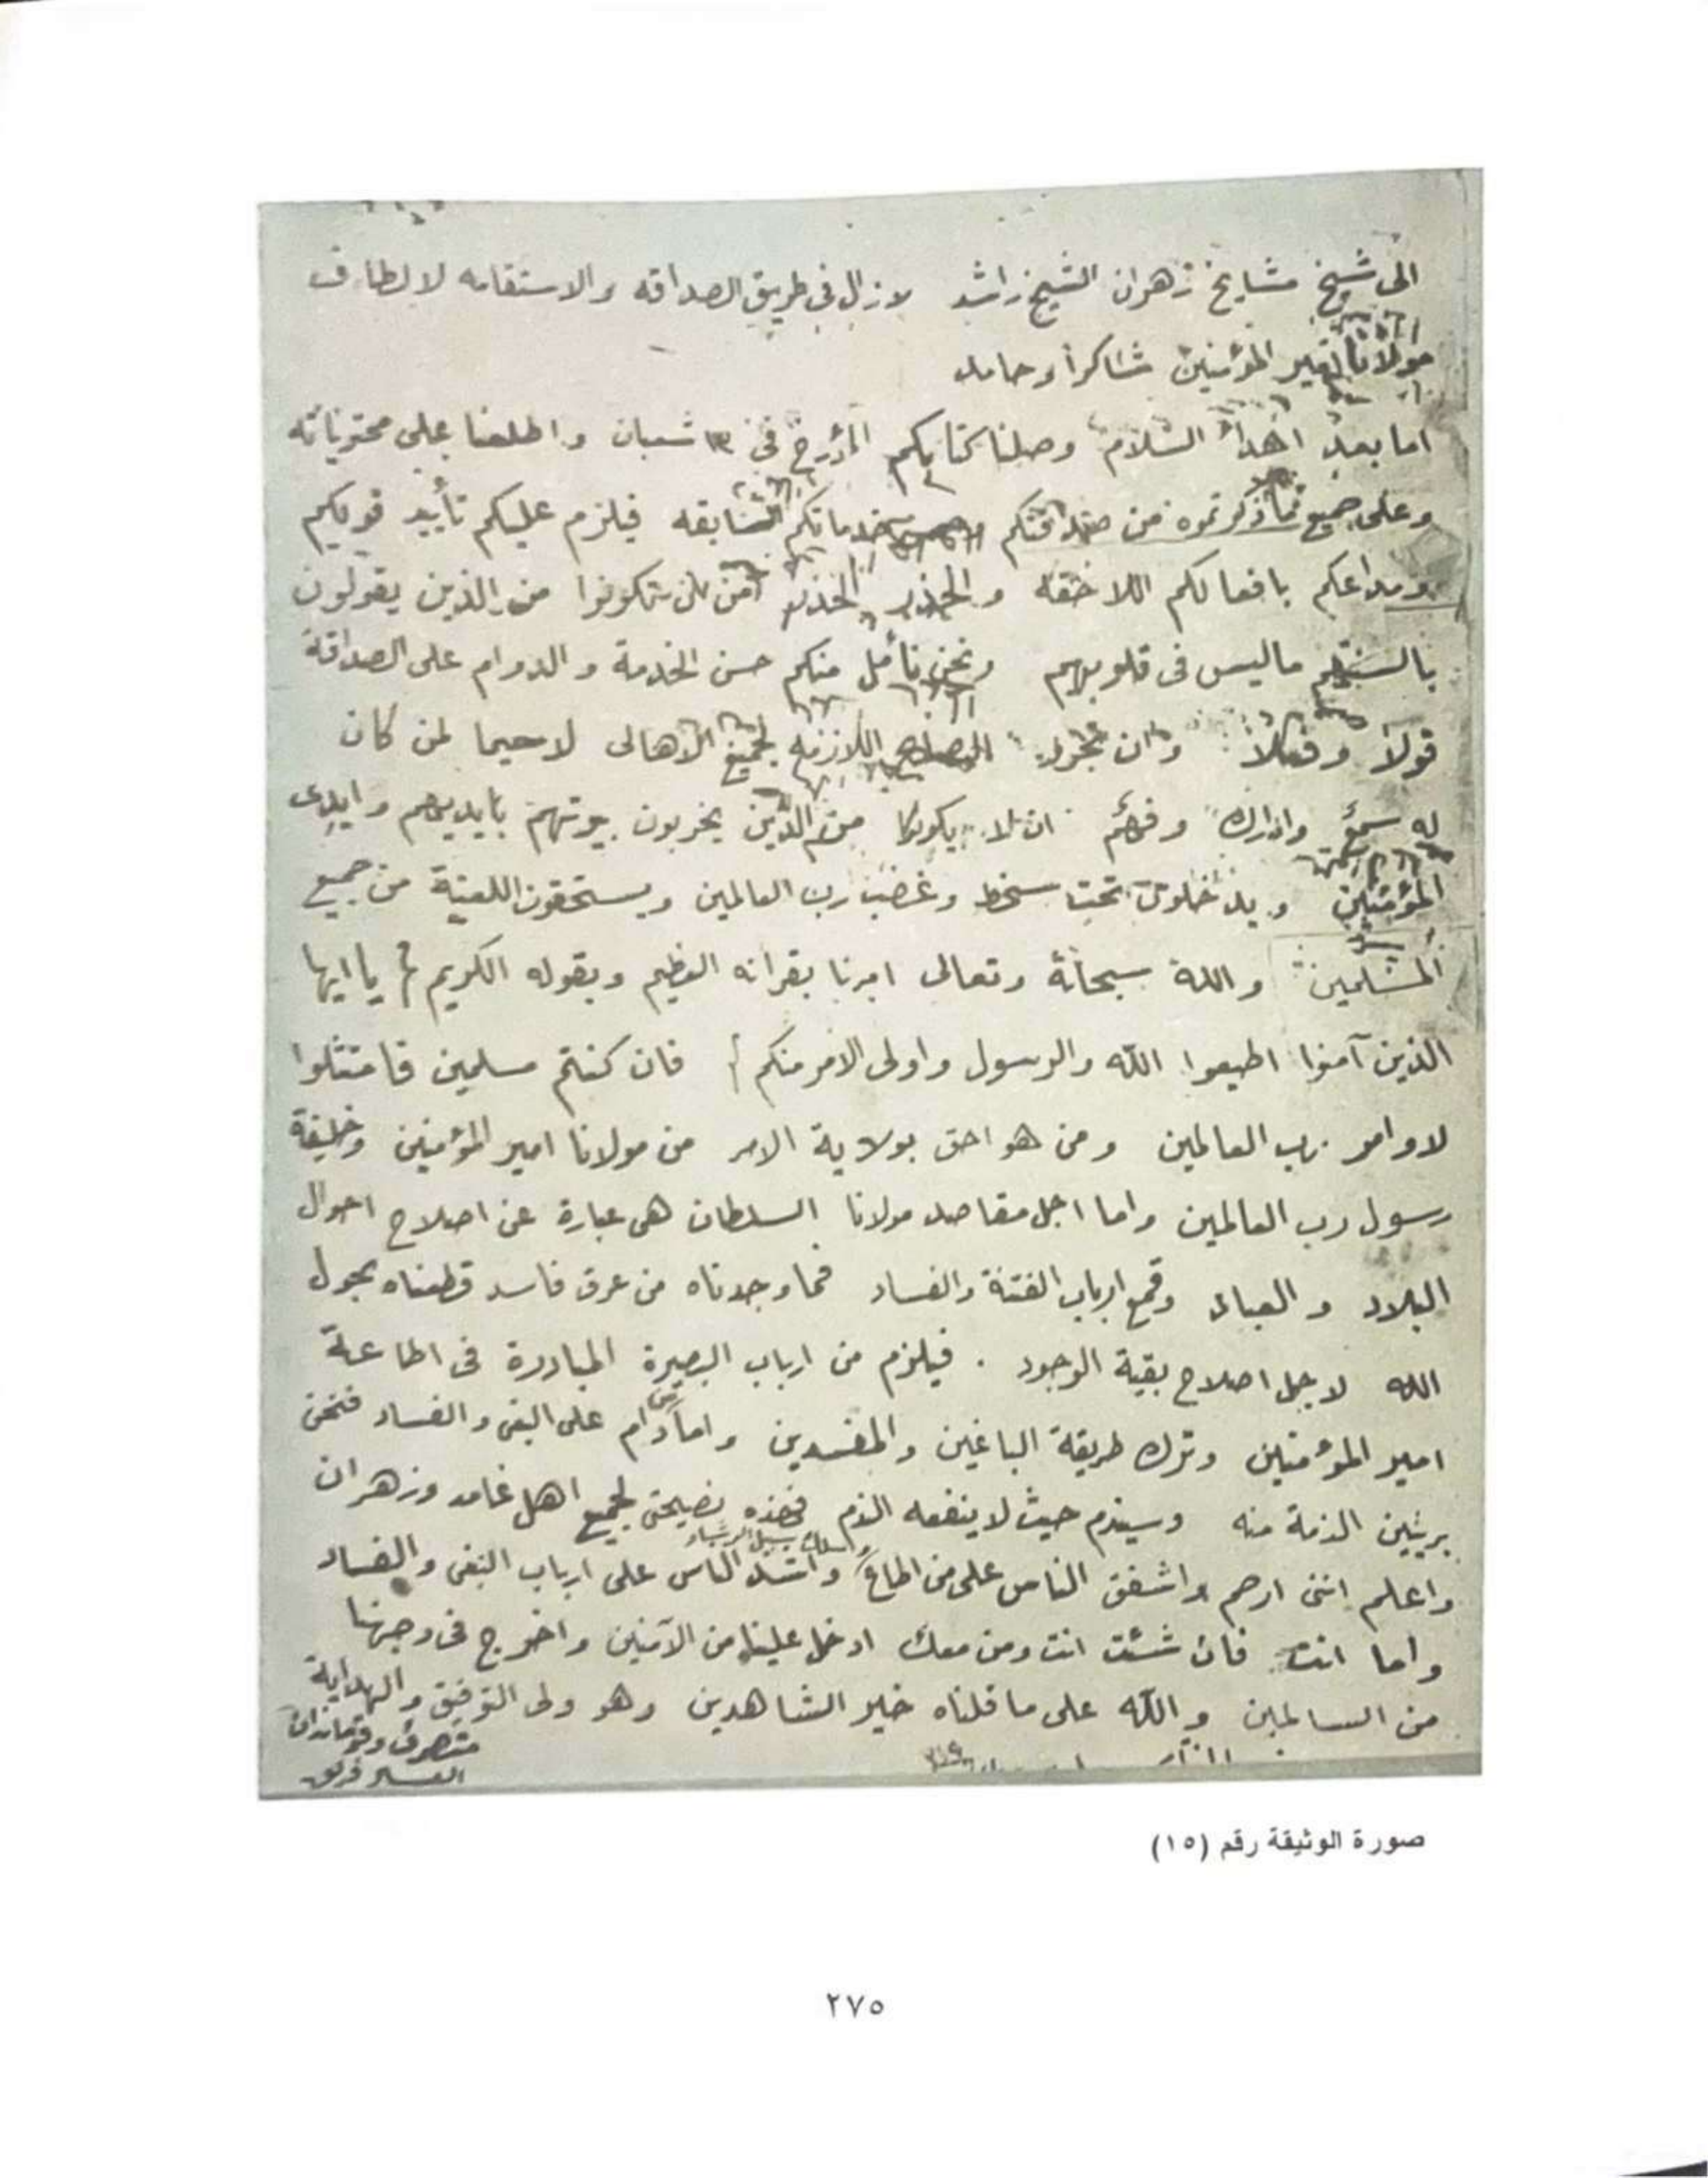 الى شيخ مشايخ زهران الشيخ راشد لازال فى طريق الصداقه والاستقامه لالطاف
مولانا امير المؤمنين شاكراً وحامد
اما بعد اهداء السلام وصلنا كتابكم المؤرخ فى ١٣ شعبان واطلعنا على محتوياته
وعلى جميع ما ذكرتموه من صداقتكم وخدماتكم السابقه فيلزم عليكم تأييد قولكم
ومدعاكم بافعالكم اللاحقه والحذر الحذر من ان تكونوا من الذين يقولون
بالسنتهم ماليس فى قلوبهم ونحن نأمل منكم حسن الخدمة والدوام على الصداقة
قولاً وفعلاً وان تجروا النصايح اللازمه لجميع الاهالى لاحيما لمن كان
له سمع وادراك وفهم ان لا يكونوا من الذين يخربون بيوتهم بايديهم وايدى
المؤمنين ويدخلون تحت سخط وغضب رب العالمين ويستحقون اللعنة من جميع
المسلمين والله سبحانه وتعالى امرنا بقرانه العظيم وبقوله الكريم يا ايها
الذين آمنوا اطيعوا الله والرسول واولى الامر منكم فان كنتم مسلمين فامتثلوا
لاوامر رب العالمين ومن هو احق بولاية الامر من مولانا امير المؤمنين وخليفة
رسول رب العالمين واما اجل مقاصد مولانا السلطان هى عبارة عن اصلاح احوال
البلاد والعباد وقمع ارباب الفتنة والفساد فما وجدناه من عرق فاسد قطعناه بحول
الله لاجل اصلاح بقية الوجود . فيلزم من ارباب البصيرة المبادرة فى اطاعة
امير المؤمنين وترك طريقة الباغين والمفسدين واما من دام على البغى والفساد فنحن
بريئين الذمة منه وسيندم حيث لا ينفعه الندم فهذه نصيحتى لجميع اهل غامد وزهران
واعلم اننى ارحم واشفق الناس على من اطاع وسلك سبيل الرشاد واشد الناس على ارباب البغى والفساد
واما انت فان شئت انت ومن معك ادخل علينا من الآمنين واخرج فى وجهنا
من السالمين والله على ما قلناه خير الشاهدين وهو ولى التوفيق والهداية
متصرف وقومندان
العسير فريق
صورة الوثيقة رقم (١٥)
٢٧٥